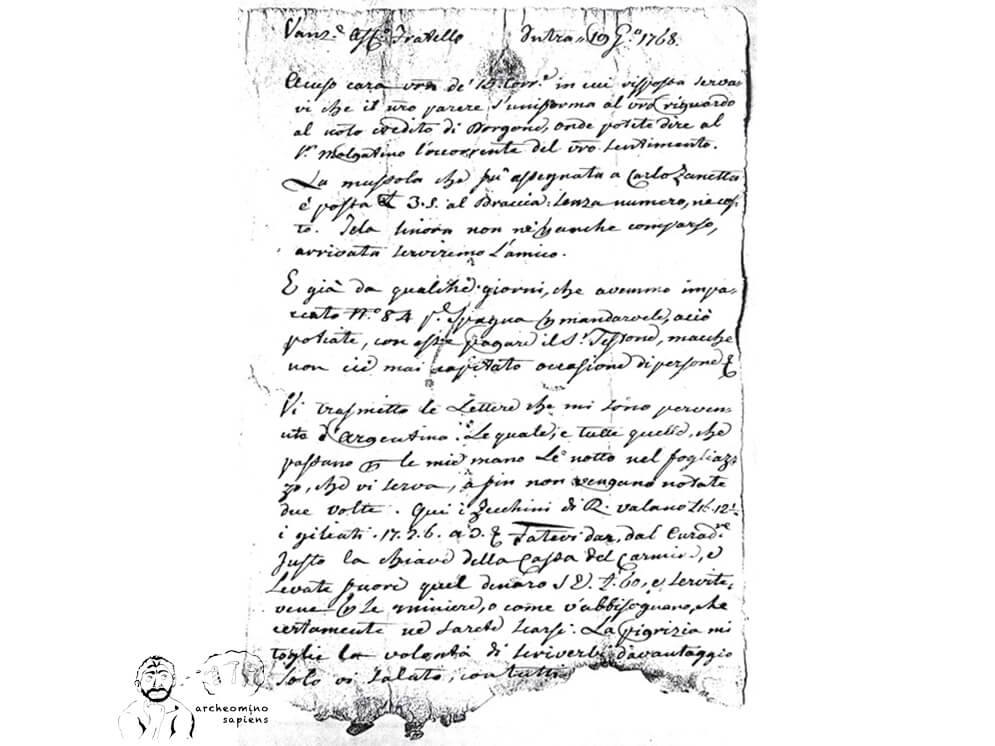 Car.mo Aff.mo Fratello Intra 19 G.o 1768.
Accuso cara vra de' 15. Corr.e in cui risposta serva
vi che il nro parere s'uniforma al vro riguardo
al noto credito di Borgone, onde potete dire al
S.r Molgatino l'occorrente del vro sentimento.
La mussola che fu assegnata a Carlo Zanetta
è posta 3. S. al Braccia: senza numero, ne cos-
to. Tela sinora non nè anche comparso,
arrivata serviremo l'amico.
E già da qualche giorni, che avemmo impa-
ccato N.o 84 Spagna mandarvele, acciò
potiate, con esse pagare il S.r Tessone, ma che
non ciè mai capitato occasione di persone
Vi trasmetto le Lettere che mi sono perven-
ute d'Argentino. Le quale, e tutte quelle, che
passano le mie mano Le notto nel fogliaz-
zo, che vi serva, a fin non vengano notate
due volte. Qui i Zecchini di R. valano
i giliati 17.3.6. Fatevi dar, dal
Justo la chiave della Cassa del Carmine, e
Levate fuori quel denaro 60, e servite-
vene le miniere, o come v'abbisognano, che
certamente ne sarete scarsi. La pigrizia mi
toglie la volontà di scrivervi d'avantaggio
Solo vi saluto, con tutti
archeomino
sapiens